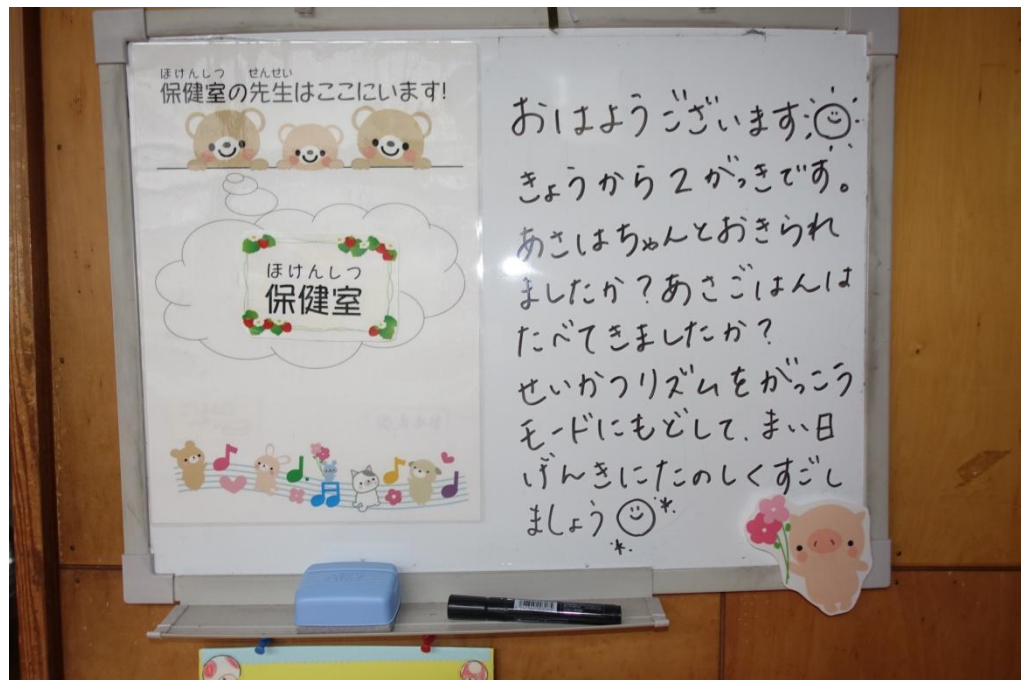 ほけんしつ せんせい
保健室の先生はここにいます!
ほけんしつ
保健室
おはようございます
きょうから2がっきです。
あさはちゃんとおきられ
ましたか?あさごはんは
たべてきましたか?
せいかつリズムをがっこう
モードにもどして、まい日
げんきにたのしくすごし
ましょう